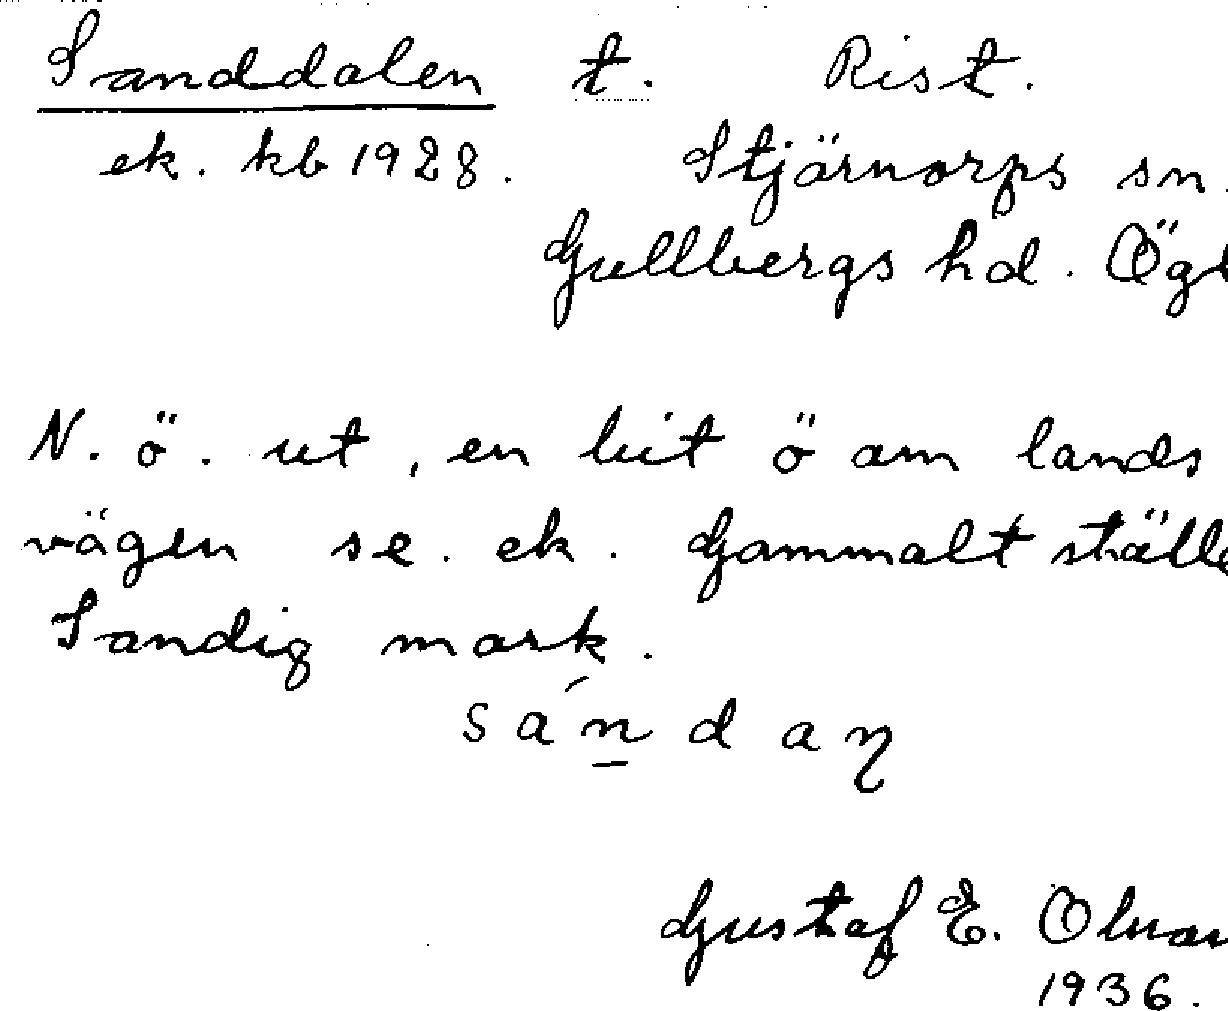 Sanddalen t. Rist.
ek. kb 1928. Stjärnorps sn.
Gullbergs hd. Ögt
N. ö. ut, en bit ö am lands
vägen se. ek. Gammalt ställe
Sandig mark.
sán̲daꞑ
Gustaf E.
1936.